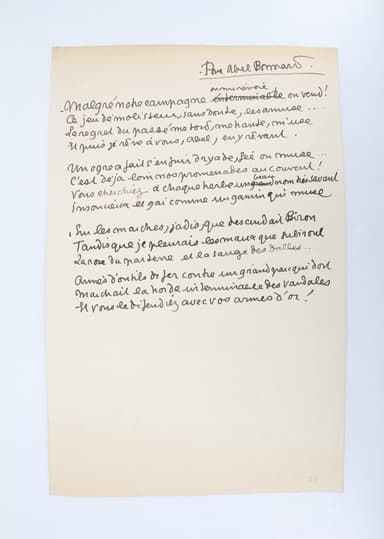 Pour Abel Bonnard.
on m'a renvoyé
Malgré notre campagne interminable on vend!
Ce jeu de molisseur, sans doute, les amuse ....
Le regret du passé me tord, me hante, m'use
Et puis je rêve à vous, Abel, en y rêvant.
Un ogre a fait s'enfuir dryade, fée ou muse ...
C'est déjà loin nos promenades au couvent!
Vous cherchiez à chaque herbe un grand nom très savant
beau
Insoucieux et gai comme un gamin qui muse
Sur les marches, jadis, que descendait Biron
Tandis que je pleurais les maux que subiront
La rose du parterre et la sauge des dalles ..
Armés d'outils de fer contre un grand parc qui dort
Marchait la horde interminable des vandales
Et vous le défendiez avec vos armes d'or!